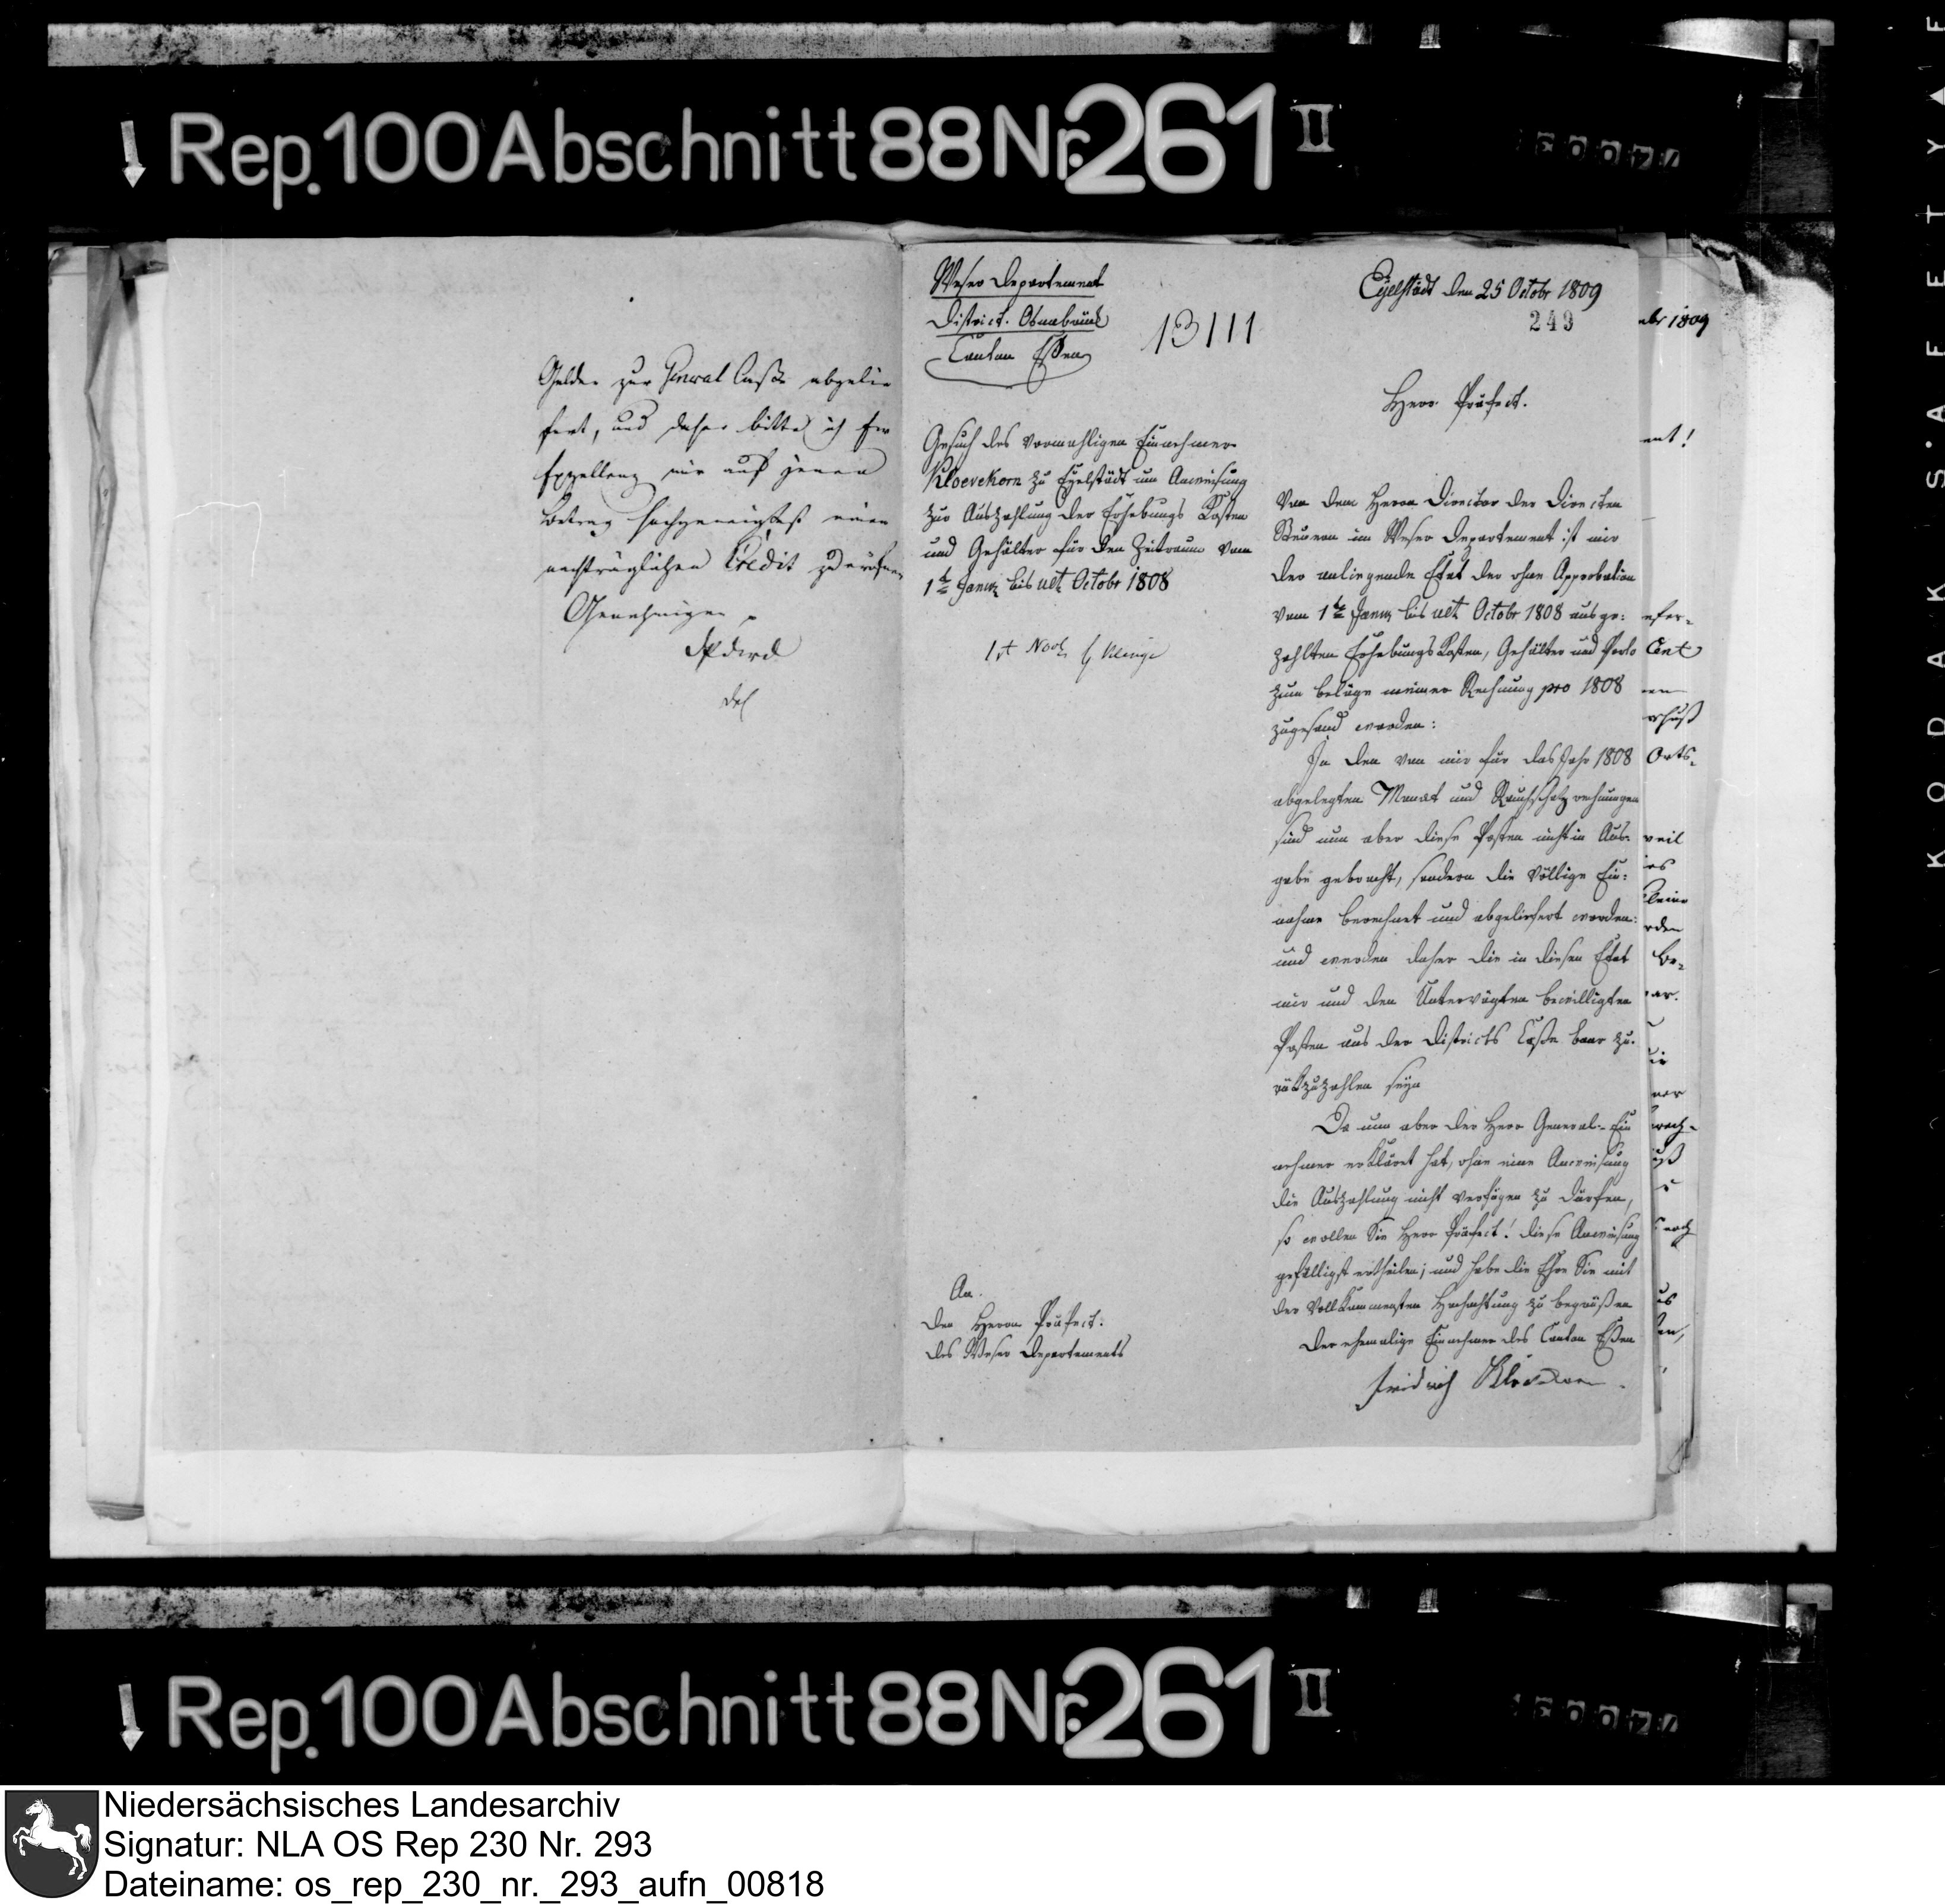 Rep. 100 Abschnitt 88 Nr. 261 II
Gelder zur General Casse abgelie
fert, und daher bitte ich Ew
Exzellenz mir auf jenen
Betrag hochgeneigtest einen
nachträglichen Credit zu eröfnen
Genehmigen
Weser Departement
District. Osnabrück
Canton Essen
13111
Gesuch des vormahligen Einnehmer
Kloevekorn zu Eyelstädt um Anweisung
zur Auszahlung der Erhebungs Kosten
und Gehälter für den Zeitraum vom
1t Janur bis ult Octobr 1808
An.
den Herrn Präfect.
des Weser Departements
Eyelstädt den 25 Octobr 1809
249
Herr Präfect.
Von dem Herrn Director der Directen
Steuern im Weser Departement ist mir
der anliegende Etat der ohne Approbation
vom 1t Janur bis ult Octobr 1808 ausge:
zahlten Erhebungs Kosten, Gehälter und Porto
zum Beläge meiner Rechnung pro 1808
zugesand worden:
In den von mir für das Jahr 1808
abgelegten Monat und Rauchschatz rechnungen
sind nun aber diese Posten nicht in Aus-
gabe gebracht, sondern die völlige Ein:
nahme berechnet und abgeliefert worden:
und werden daher die in diesen Etat
mir und den Untervögten bewilligten
Posten aus der Districts Casse baar zu-
rükzuzahlen seyn
Da nun aber der Herr General-Ein
nehmer erkläret hat, ohne eine Anweisung
die Auszahlung nicht verfügen zu dürfen,
so wollen Sie Herr Präfect! diese Anweisung
gefälligst ertheilen; und habe die Ehre Sie mit
der Vollkommensten Hochachtung zu begrüßen
Der ehemalige Einnehmer des Canton Essen
Friedrich Klövekorn
obr 1809
ent!
Cent
Orts-
weil
Be-
Rep. 100 Abschnitt 88 Nr. 261 II
KODAK S'AFETY
Niedersächsisches Landesarchiv
Signatur: NLA OS Rep 230 Nr. 293
Dateiname: os_rep_230_nr._293_aufn_00818